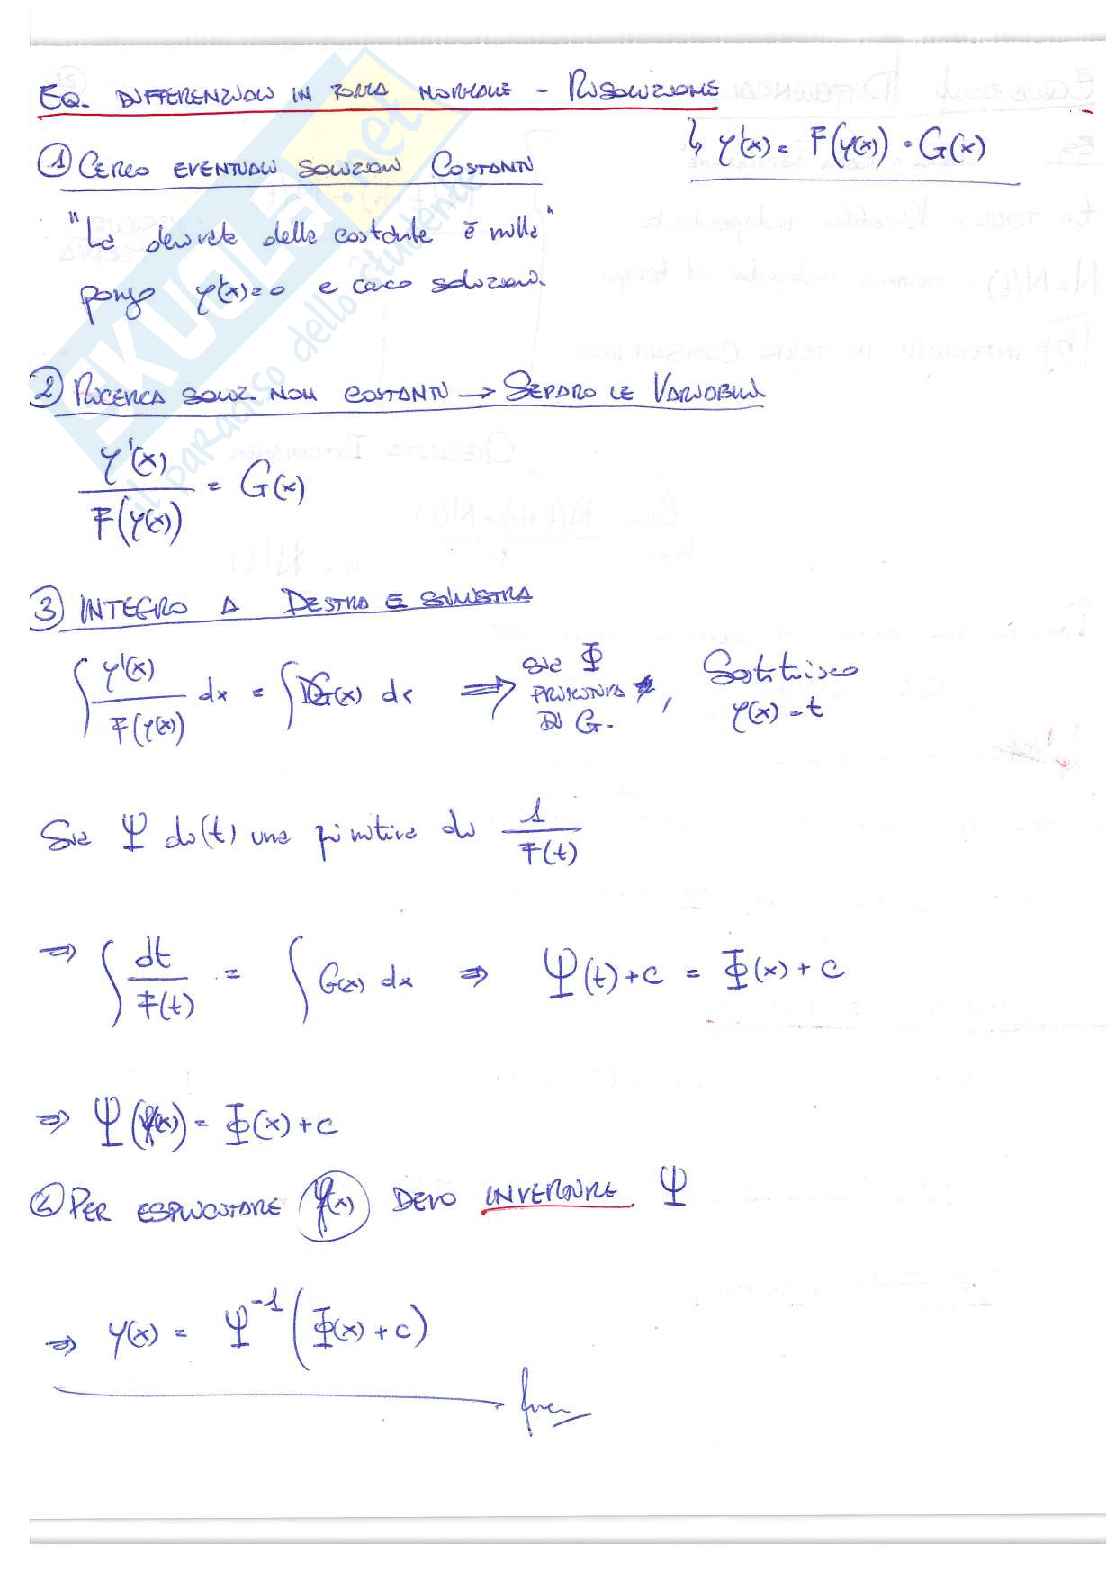 EQ. DIFFERENZIALI IN FORMA NORMALE - RISOLUZIONE
↳ y'(x) = F(y(x)) · G(x)
① CERCO EVENTUALI SOLUZIONI COSTANTI
"La derivata della costante è nulla"
pongo y'(x)=0 e cerco soluzioni.
② RICERCA SOLUZ. NON COSTANTI → SEPARO LE VARIABILI
y'(x) / F(y(x)) = G(x)
③ INTEGRO A DESTRA E SINISTRA
∫ y'(x) / F(y(x)) dx = ∫ G(x) dx ⇒ sia Φ PRIMITIVA DI G. , Sostituisco y(x) = t
Sia Ψ di (t) una primitiva di 1 / F(t)
⇒ ∫ dt / F(t) = ∫ G(x) dx ⇒ Ψ(t) + c = Φ(x) + c
⇒ Ψ(y(x)) = Φ(x) + c
④ PER ESPLICITARE y(x) DEVO INVERTIRE Ψ
⇒ y(x) = Ψ⁻¹ (Φ(x) + c)
SKUOLA.net
il paradiso dello studente